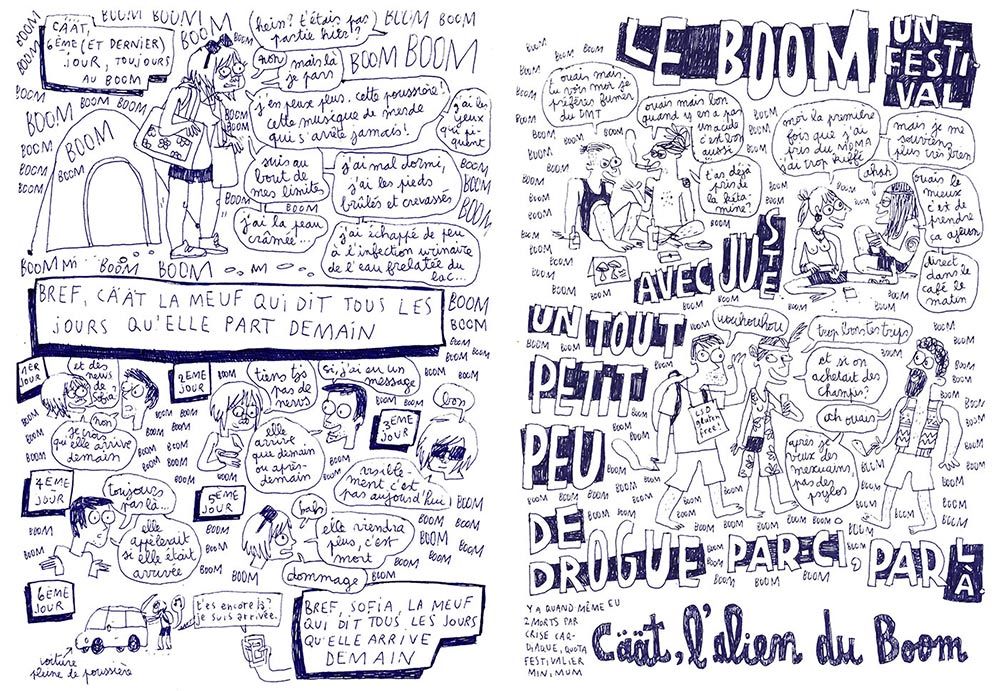 BOOM BOOM BOOM BOOM BOOM
CÄÄT,
6ÈME (ET DERNIER)
JOUR, TOUJOURS
AU BOOM
hein? t'étais pas
partie hits!?
non mais là
je pars
BOOM BOOM
j'en peux plus, cette poussière!
cette musique de merde
qui s'arrête jamais!
j'ai les
yeux
qui pi-
quent
BOOM
BOOM
suis au
bout de
mes limites
j'ai mal dormi,
j'ai les pieds
brûlés et crevassés
j'ai la peau
crâmée...
j'ai échappé de peu
à l'infection urinaire
de l'eau frelatée du
lac...
BOOM BOOM BOOM
BREF, CÄÄT LA MEUF QUI DIT TOUS LES
JOURS QU'ELLE PART DEMAIN
BOOM
BOOM
1ER
JOUR
et des
news de
Sofia?
non
je crois
qu'elle arrive
demain
2ÈME
JOUR
tiens tjs
pas de
news
si, j'ai eu un
message
elle
arrive
que demain
ou après-
demain
3ÈME
JOUR
bon
visible-
ment c'est
pas aujourd'hui
4ÈME
JOUR
toujours
pas là...
elle
appelerait
si elle était
arrivée
5ÈME
JOUR
bah
elle viendra
plus, c'est
mort
dommage
6ÈME
JOUR
t'es encore là?
je suis arrivée.
voiture
pleine de poussière
BREF, SOFIA, LA MEUF
QUI DIT TOUS LES JOURS
QU'ELLE ARRIVE
DEMAIN
LE BOOM UN
FESTI
VAL
ouais mais,
tu vois moi je
préfère fumer
du DMT
ouais mais bon
quand y en a pas
un acide
c'est bon
aussi
t'as déjà
pris de
la kéta-
mine?
moi la première
fois que j'ai
pris du MDMA
j'ai trop kiffé
mais je me
souviens
plus très bien
ahah
ouais le
mieux
c'est de
prendre
ça à jeun
direct
dans le
café le
matin
AVEC JUSTE
UN TOUT
PETIT
PEU
DE
DROGUE PAR-CI, PAR LÀ
wouhouhou
trop bons tes trips
LSD
gluten
free!
et si on
achetait des
champs?
ah ouais
après je
veux des
mexicains,
pas des
psylos
BOOM BOOM BOOM
Y A QUAND MÊME EU
2 MORTS PAR
CRISE CAR-
DIAQUE, QUOTA
FESTIVALIER
MINIMUM
Cäät, l'alien du Boom